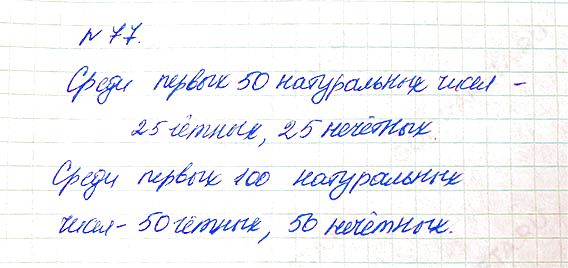 № 77.
Среди первых 50 натуральных чисел -
25 чётных, 25 нечётных.
Среди первых 100 натуральных
чисел - 50 чётных, 50 нечётных.